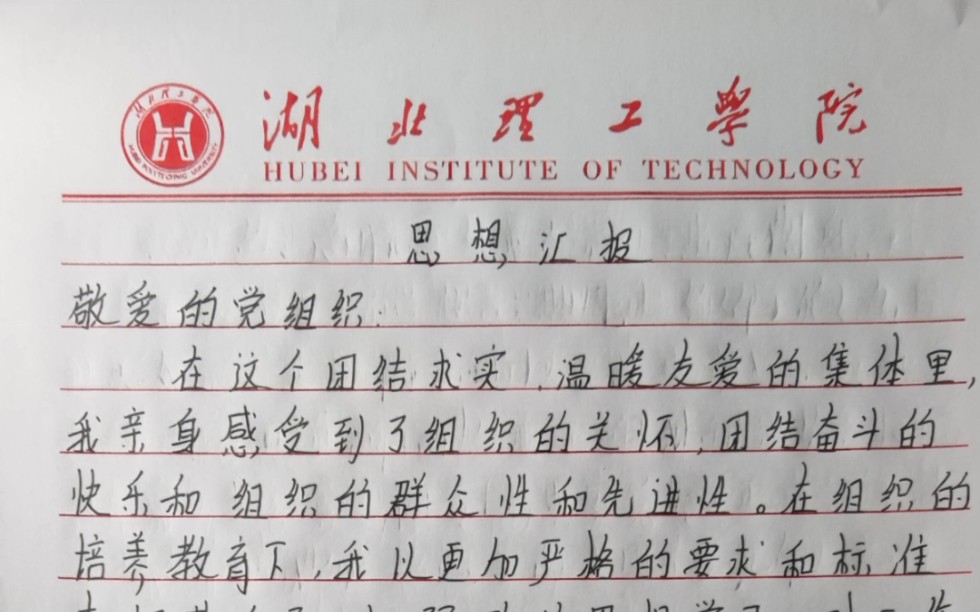 湖北理工学院
HUBEI INSTITUTE OF TECHNOLOGY
思想汇报
敬爱的党组织:
在这个团结求实,温暖友爱的集体里,
我亲身感受到了组织的关怀,团结奋斗的
快乐和组织的群众性和先进性。在组织的
培养教育下,我以更加严格的要求和标准